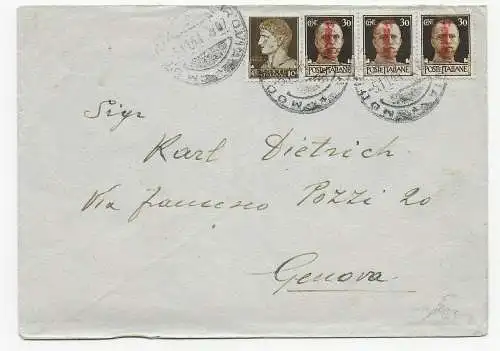 10
CENT. 30
POSTE ITALIANE
CENT. 30
POSTE ITALIANE
CENT. 30
POSTE ITALIANE
Sigr
Karl Dietrich
Via francesco Pozzi 20
Genova